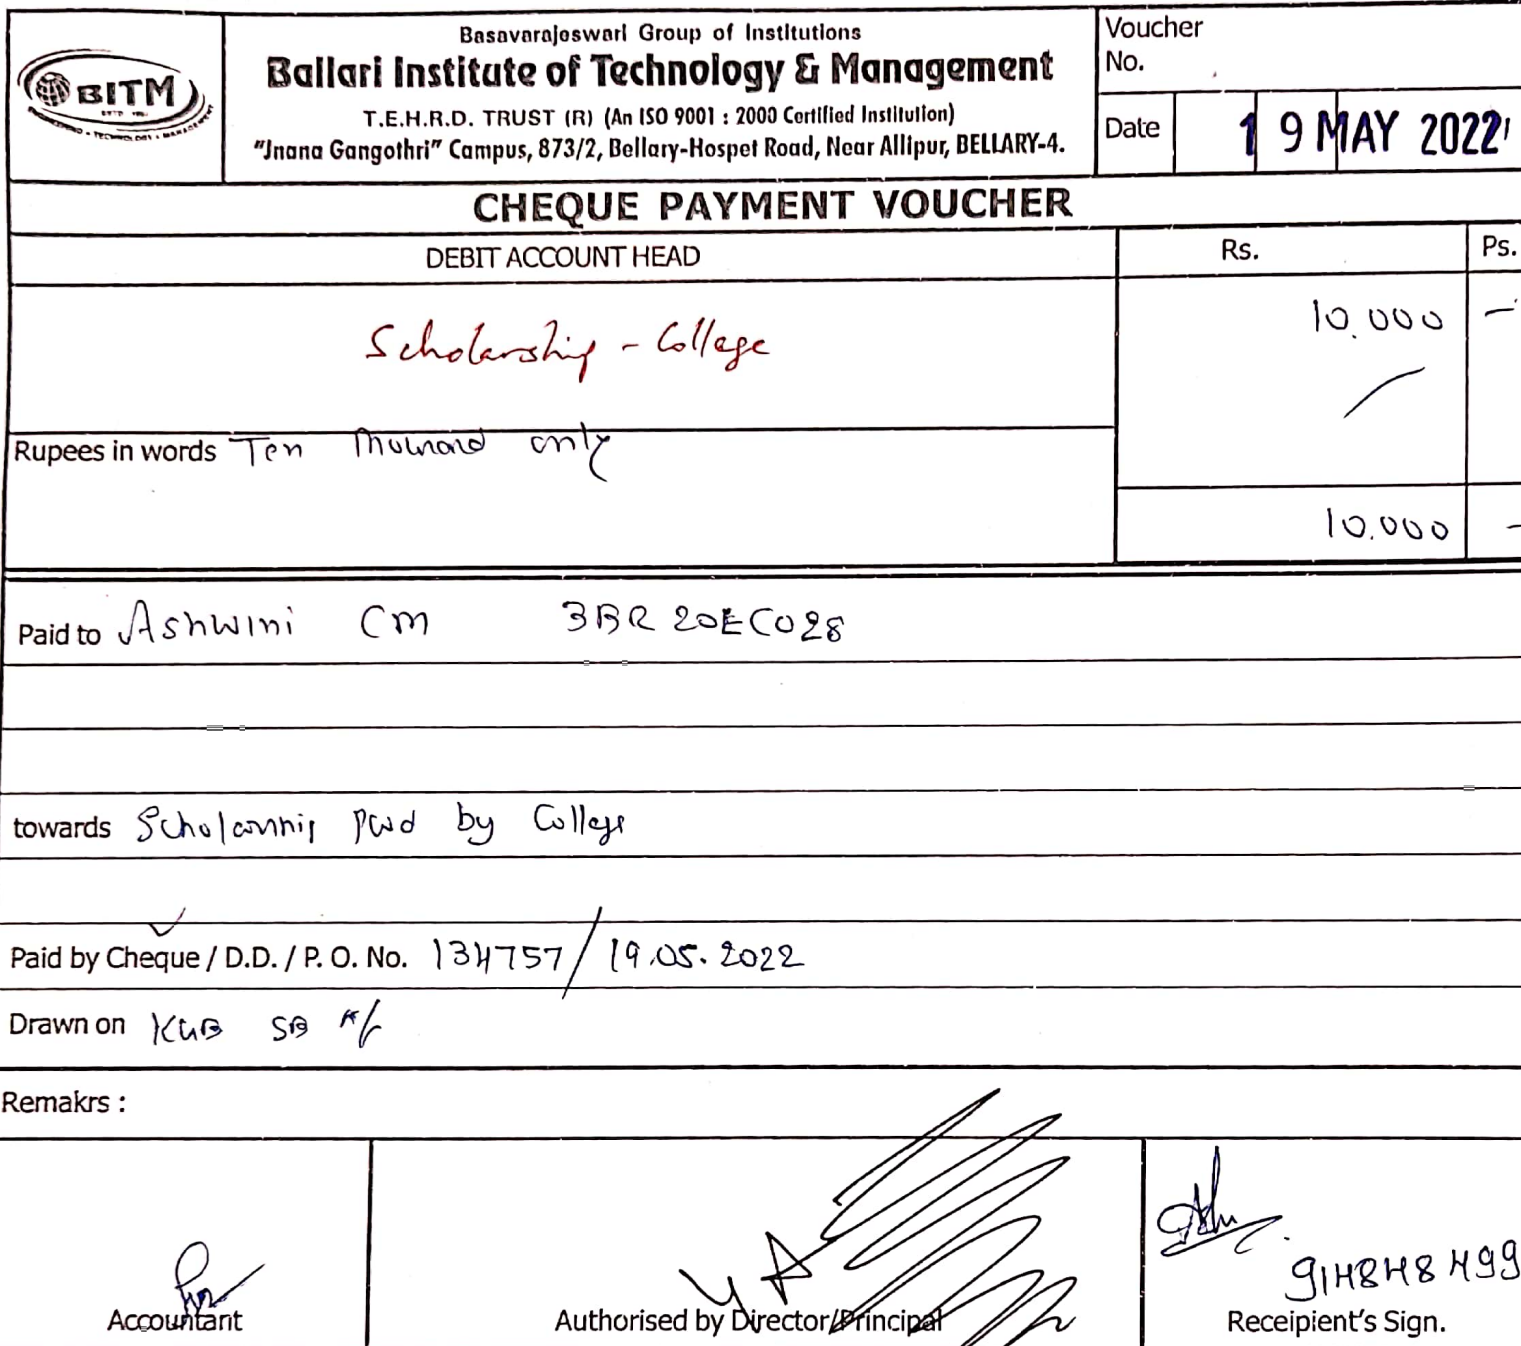 BITM
ESTD 1997
ENGINEERING • TECHNOLOGY • MANAGEMENT
Basavarajeswari Group of Institutions
Ballari Institute of Technology & Management
T.E.H.R.D. TRUST (R) (An ISO 9001 : 2000 Certified Institution)
"Jnana Gangothri" Campus, 873/2, Bellary-Hospet Road, Near Allipur, BELLARY-4.
Voucher
No.
Date 19 MAY 2022
CHEQUE PAYMENT VOUCHER
DEBIT ACCOUNT HEAD Rs. Ps.
Scholarship - College 10.000 —
Rupees in words Ten Thousand only
10.000 -
Paid to Ashwini CM 3BR20EC028
towards Scholarship paid by College
Paid by Cheque / D.D. / P. O. No. 134757/19.05.2022
Drawn on KGB SB A/c
Remakrs :
914848499
Accountant Authorised by Director/Principal Receipient's Sign.